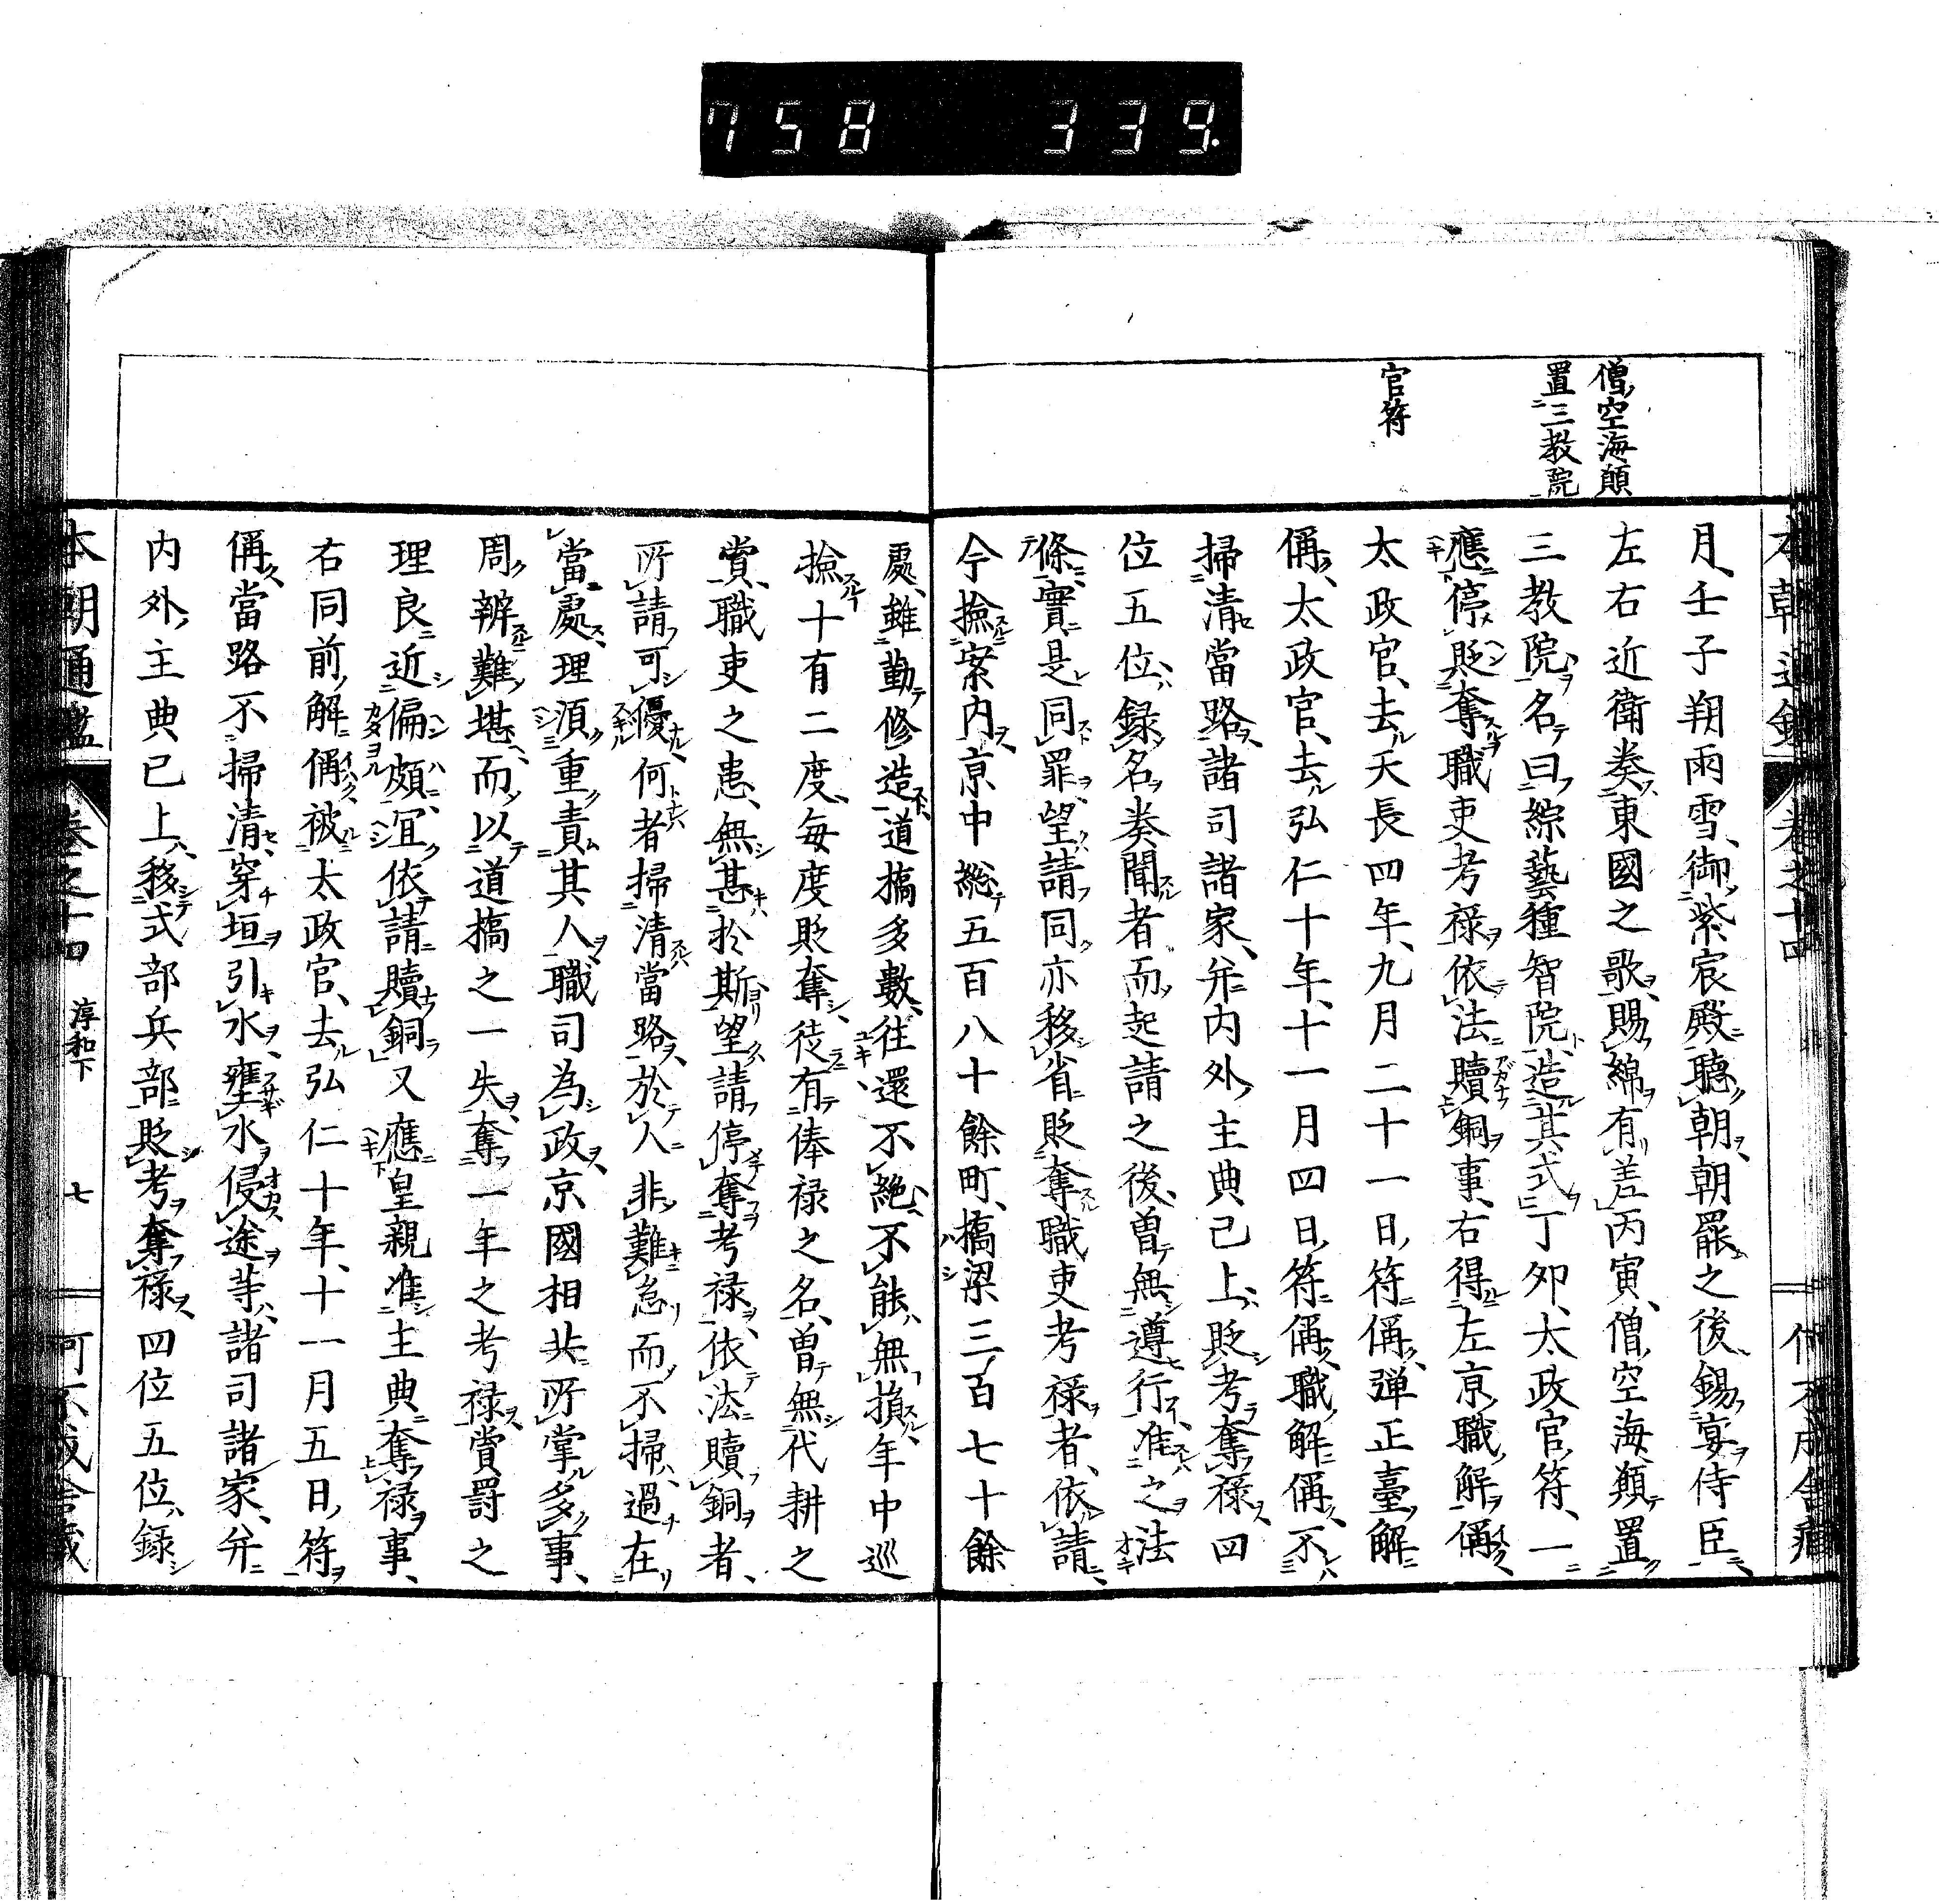 758 339.
僧空海願
置三教院
官符
月、壬子朔雨雪、御紫宸殿聽朝、朝罷之後、錫宴侍臣、
左右近衛奏東國之歌、賜綿有差、丙寅、僧空海願置
三教院、名曰綜藝種智院、造其式、丁卯、太政官符、一
應停貶奪職吏考禄依法贖銅事、右得左京職解偁、
太政官、去天長四年、九月二十一日符偁、彈正臺解
偁、太政官、去弘仁十年、十一月四日符偁、職解偁、不
掃清當路、諸司諸家、并内外主典已上、貶考奪禄、四
位五位、録名奏聞者、而起請之後、曾無遵行、准之法
條、實是同罪、望請同亦移省貶奪職吏考禄者、依請、
今撿案内、京中惣五百八十餘町、橋梁三百七十餘
處、雖勤修造、道橋多數、往還不絶、不能無損、年中巡
撿十有二度、毎度貶奪、徒有俸禄之名、曾無代耕之
賞、職吏之患、無甚於斯、望請停奪考禄、依法贖銅者、
所請可優、何者掃清當路、於人非難、怠而不掃、過在
當處、理須重責其人、職司為政、京國相共、所掌多事、
周辨難堪、而以道橋之一失、奪一年之考禄、賞罰之
理良近偏頗、宜依請贖銅、又應皇親准主典奪禄事、
右同前解偁、被太政官、去弘仁十年、十一月五日符
偁、當路不掃清、穿垣引水、壅水侵途等、諸司諸家、并
内外主典已上、移式部兵部、貶考奪禄、四位五位、録
本朝通鑑 卷之十四 淳和下 七